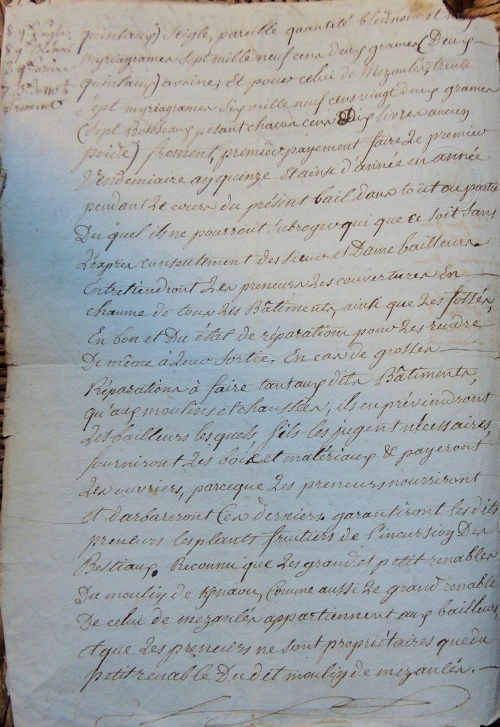 8 qx seigle
8 qx
2 qx avoine
froment
quintaux) seigle, pareille quantité bled noir et
myriagrames sept mille neuf cens deux grames (Deux
quintaux) avoine; Et pour celui de Mezaulés, trente
sept myriagrames six mille neuf cens vingt deux grames
(sept Boisseaux pesant chacun cent Dix livres ancien
poids) froment, premier payement faire le premier
Vendemiaire an quinze et ainsi d'année en année
pendant le cours du présent bail dans tout ou partie
Du quel ils ne pourront subroger qui que ce soit sans
L'exprès consentement des sieur et Dame bailleurs.
Entretiendront les preneurs les couvertures En
chaume de tous les Bâtiments, ainsi que les fossés,
En bon et Du état de réparations pour les rendre
De même à leur sortie. En cas de grosses
Réparations à faire tant aux dits Bâtiments,
qu'aux moulins et chaussées, ils en préviendront
Les bailleurs les quels s'ils les jugent nécessaires,
fourniront les bois et matériaux & payeront
Les ouvriers, parceque les preneurs nourriront
et darbareront ces derniers. garantiront les dits
preneurs les plants fruitiers de l'incursion Des
Bestiaux. Reconnu que les grand et petit renables
Du moulin de comme aussi le grand renable
De celui de mezaulés appartiennent aux bailleurs,
et que les preneurs ne sont propriétaires que du
petit renable Du dit moulin de mezaulés.